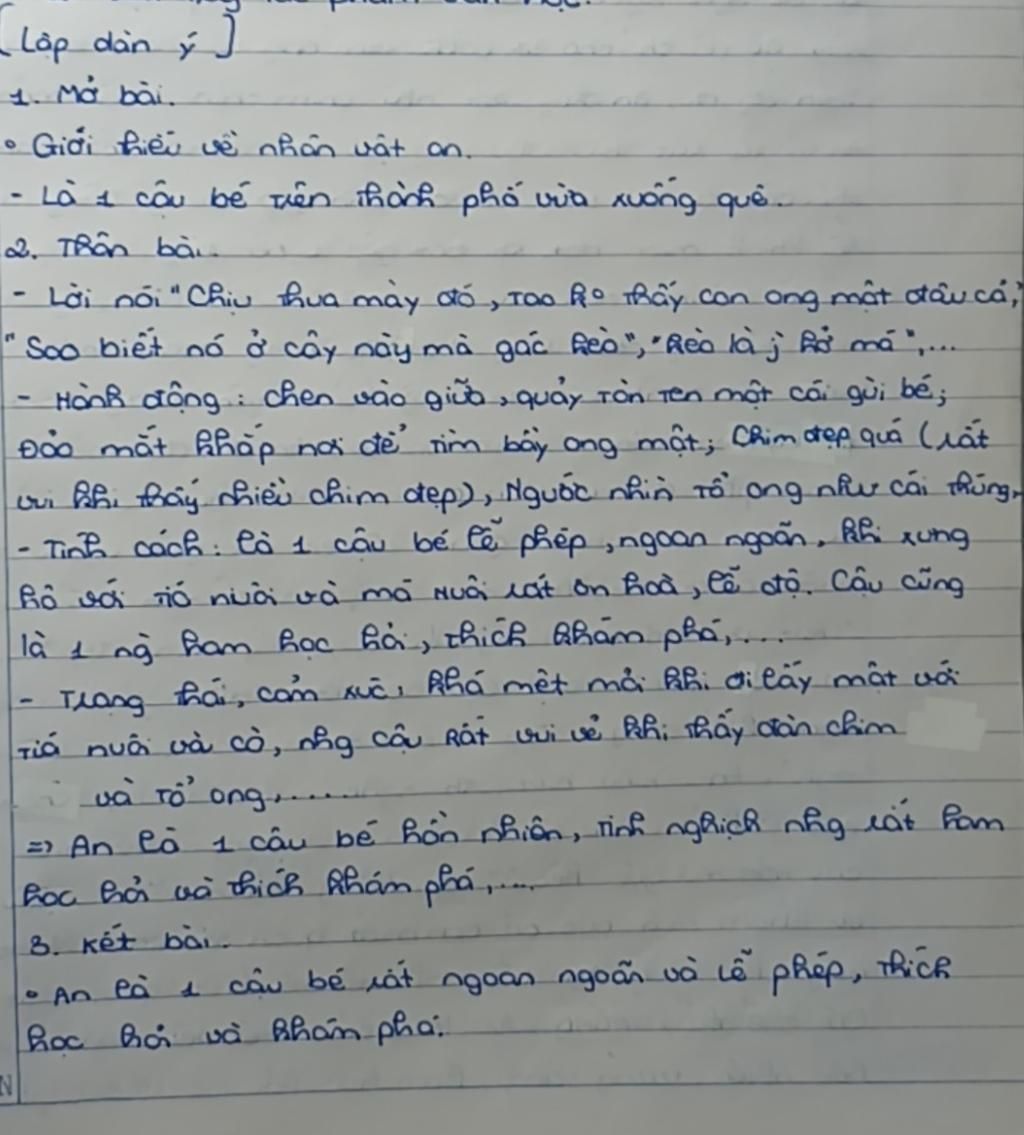 [Lập dàn ý]
1. Mở bài.
• Giới thiệu về nhân vật an.
- Là 1 cậu bé trên thành phố vừa xuống quê.
2. Thân bài.
- Lời nói "Chịu thua mày đó, tao ko thấy con ong mật đâu cả,"
"Sao biết nó ở cây này mà gác kèo", "kèo là j hở má",...
- Hành động: chen vào giữa, quảy tòn ten một cái gùi bé;
Đảo mắt khắp nơi để tìm bầy ong mật; Chim đẹp quá (rất
vui khi thấy nhiều chim đẹp), Ngước nhìn tổ ong như cái thúng,
- Tính cách: là 1 cậu bé lễ phép, ngoan ngoãn. Khi xưng
hô với tía nuôi và má nuôi rất ôn hoà, lễ độ. Cậu cũng
là 1 ng ham học hỏi, thích khám phá,...
- Trạng thái, cảm xúc: khá mệt mỏi khi đi lấy mật với
tiá nuôi và cò, nhg cậu rất vui vẻ khi thấy đàn chim
và tổ ong,......
=> An là 1 cậu bé hồn nhiên, tinh nghịch nhg rất ham
học hỏi và thích khám phá,....
3. Kết bài.
• An là 1 cậu bé rất ngoan ngoãn và lễ phép, thích
học hỏi và khám phá.